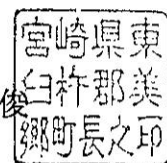 宮崎県東
臼杵郡美
郷町長之印
俊